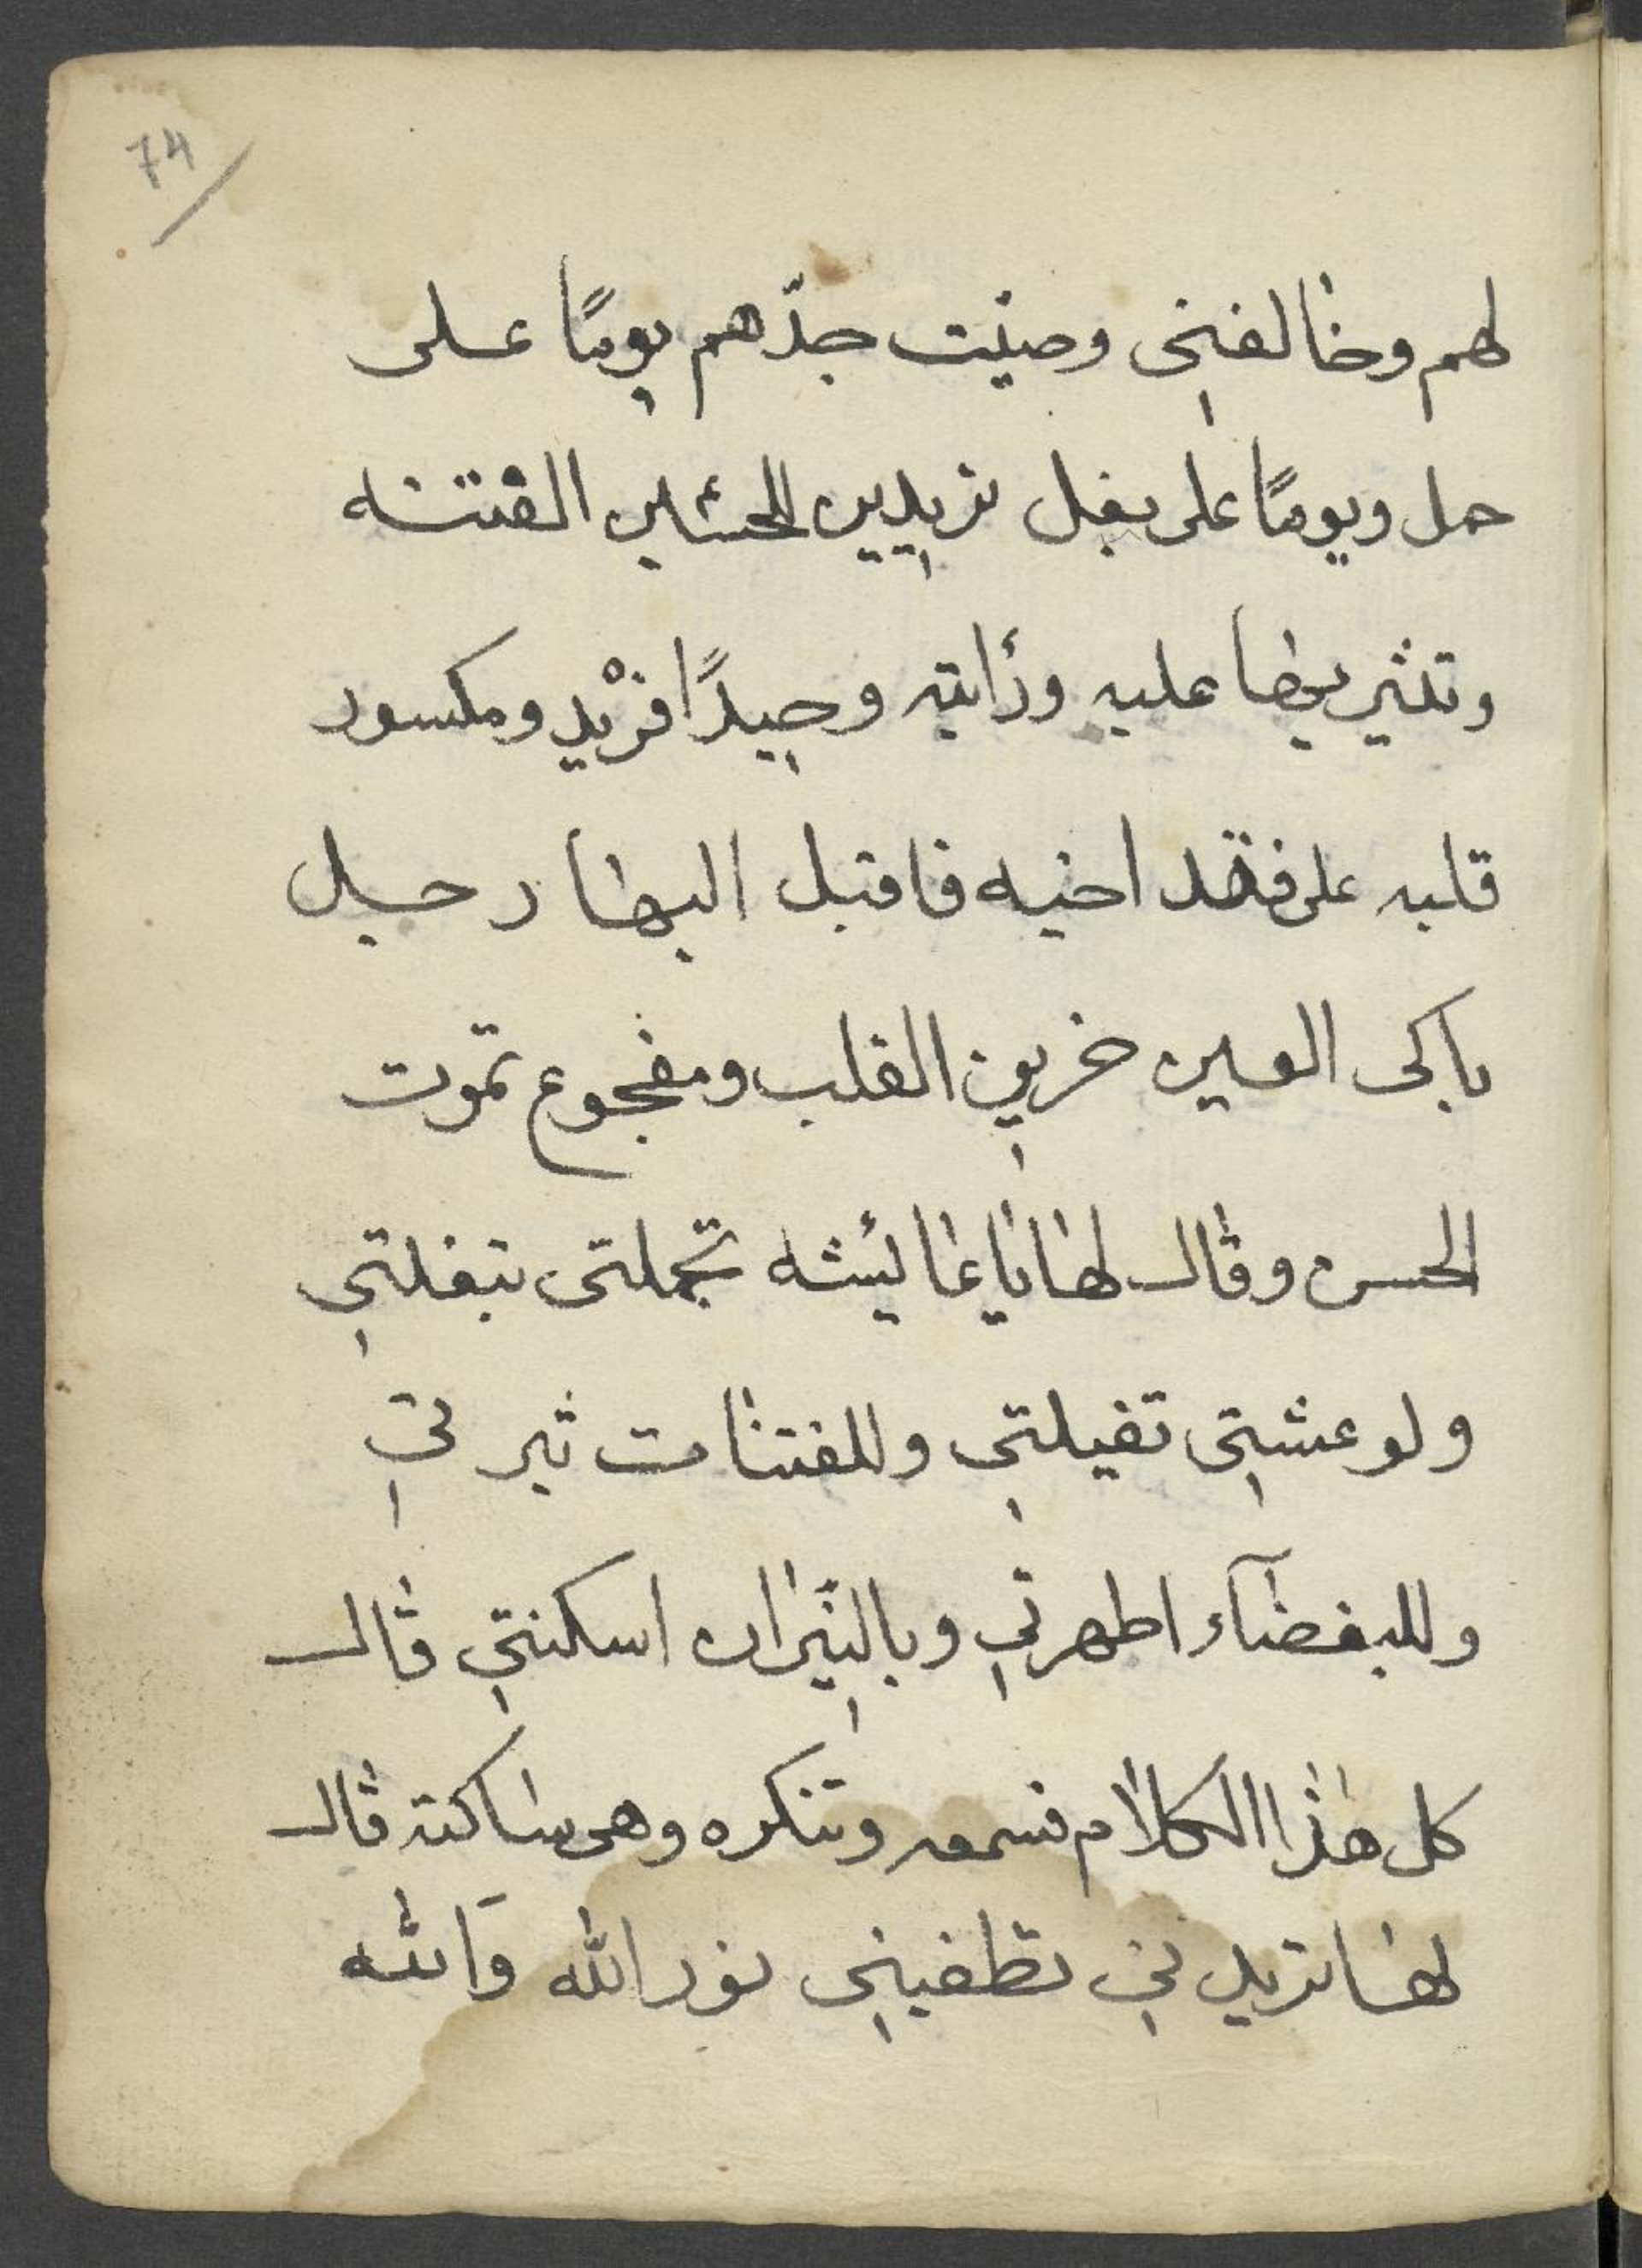 74
لهم وخالفني وصيّت جدّهم يومًا على
حمل ويومًا على بغل تريدين للحسين الفتنه
وتثير بها عليه ورأيته وحيدًا فريْد ومكسور
قلبه على فقد اخيه فاقبل اليها رجل
باكى العين حزين القلب ومفجوع بموت
الحسن وقال لها يا عائيشه تجملتى تبغلتي
ولو عشتي تفيلتي وللفتنا مت ثير ني
وللبغضآء اظهرتي وبالنّيران اسكنتي قال
كل هذا الكلام تسمعه وتنكره وهى ساكته قال
لها تريد ني تطفيني نور الله وَالله